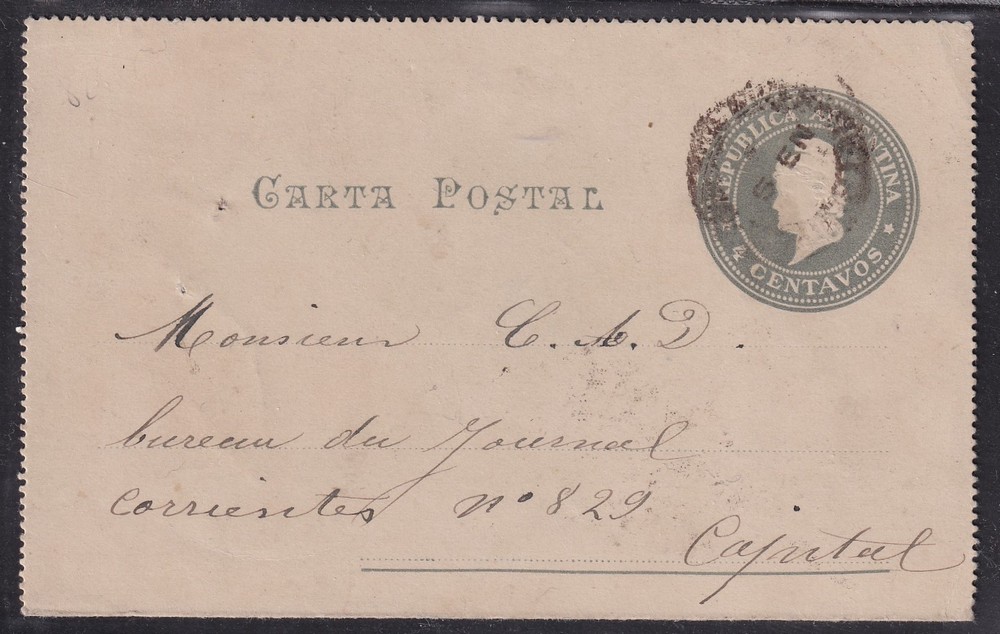 CARTA POSTAL
REPUBLICA ARGENTINA
4 CENTAVOS
EN
Monsieur C. A. D.
bureau du Journal
corrientes nº 829
Capital